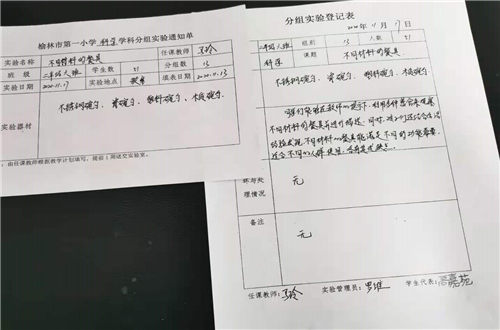 榆林市第一小学科学学科分组实验通知单
实验名称 不同材料的餐具 任课教师 马玲
班级 二年级八班 学生数 51 分组数 13
实验日期 2020.11.17 实验地点 教室 填表日期 2020.11.13
实验器材 不锈钢碗勺、瓷碗勺、塑料碗勺、木碗勺、
由任课教师根据教学计划填写，提前1周送交实验室。
分组实验登记表
2020年11月17日
二年级八班 组别 13 人数 51
科学 课题 不同材料的餐具
不锈钢碗勺、瓷碗勺、塑料碗勺、木碗勺
不同材料的餐具并进行描述，同时
经验发现不同材料的餐具能满足不同的功能需要，
适合不同的人群使用，
坏与处理情况 无
备注 无
任课教师：马玲 实验管理员：罗维 学生代表：